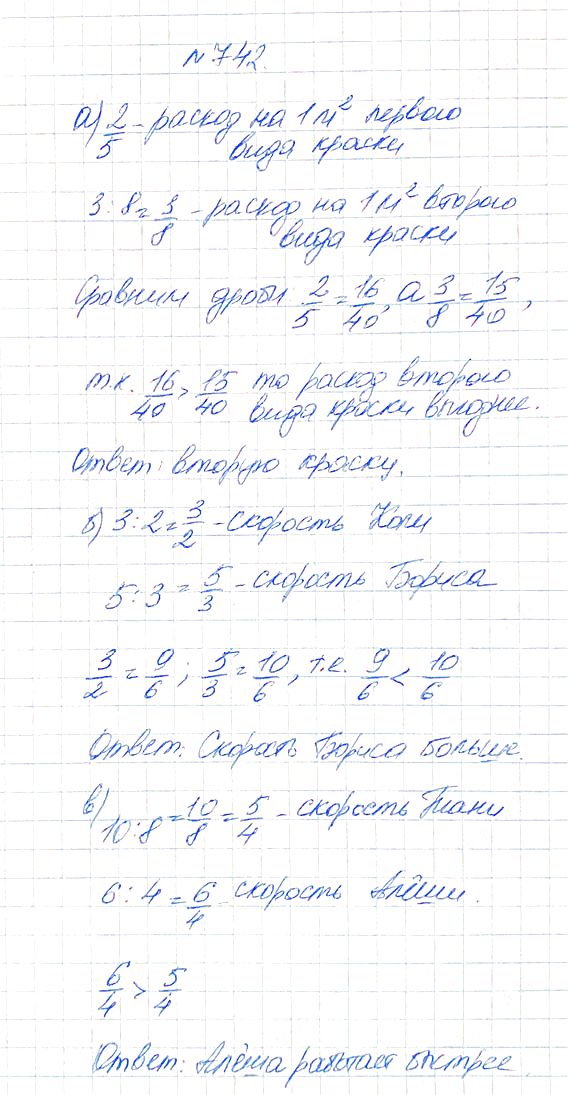 №742.
а) 2/5 - расход на 1м² первого
вида краски
3:8=3/8 - расход на 1м² второго
вида краски
Сравним дроби 2/5=16/40, а 3/8=15/40,
т.к. 16/40 > 15/40 то расход второго
вида краски выгоднее.
Ответ: вторую краску.
б) 3:2=3/2 - скорость Коли
5:3=5/3 - скорость Бориса
3/2=9/6; 5/3=10/6, т.е. 9/6 < 10/6
Ответ: Скорость Бориса больше.
в) 10:8=10/8=5/4 - скорость Тани
6:4=6/4 скорость Алёши.
6/4 > 5/4
Ответ: Алёша работает быстрее.